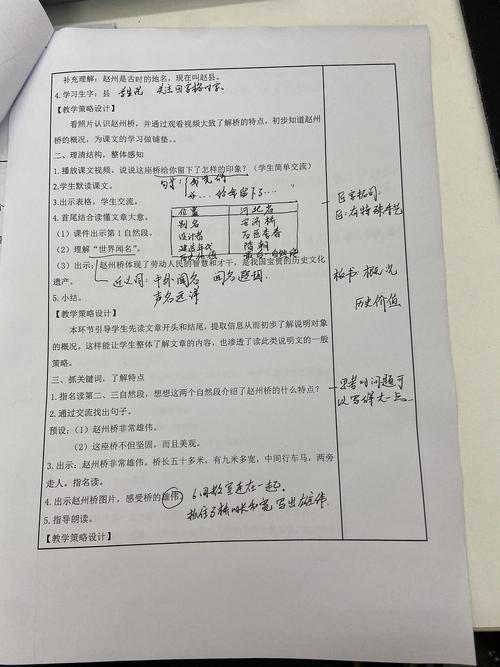 补充理解：赵州是古时的地名，现在叫赵县。
4.学习生字：县 学生说 关注田字格吅字.
【教学策略设计】
看照片认识赵州桥，并通过观看视频大致了解桥的特点，初步知道赵州
桥的概况，为课文的学习做铺垫。。
二、理清结构，整体感知
1.播放课文视频。说说这座桥给你留下了怎样的印象？（学生简单交流）
句式：我觉得
给我留下了……
2.学生默读课文。
3.出示表格，学生交流。
位置 河北省
别名 安济桥
设计者 石匠李春
建造年代 隋朝
4.首尾结合读懂文章大意。
（1）课件出示第1自然段。
（2）理解“世界闻名”。
（3）出示：赵州桥体现了劳动人民的智慧和才干，是我国宝贵的历史文化
遗产。
近义词：中外闻名 闻名遐迩
声名远洋
5.小结。
匠：有特殊手艺
板书：概况
历史价值
【教学策略设计】
本环节引导学生先读文章开头和结尾，提取信息从而初步了解说明对象
的概况。这样能让学生整体了解文章的内容，也渗透了读此类说明文的一般
策略。
三、抓关键词，了解特点
1.指名读第二、三自然段，想想这两个自然段介绍了赵州桥的什么特点？
思考的问题可
以写详尽一点.
2.通过交流找出句子。
预设：（1）赵州桥非常雄伟。
（2）这座桥不但坚固，而且美观。
3.出示：赵州桥非常雄伟。桥长五十多米，有九米多宽，中间行车马，两旁
走人。指名读。
4.出示赵州桥图片，感受桥的雄伟。
6间教室连在一起。
抓住了桥的长和宽 写出雄伟.
5.指导朗读。
【教学策略设计】